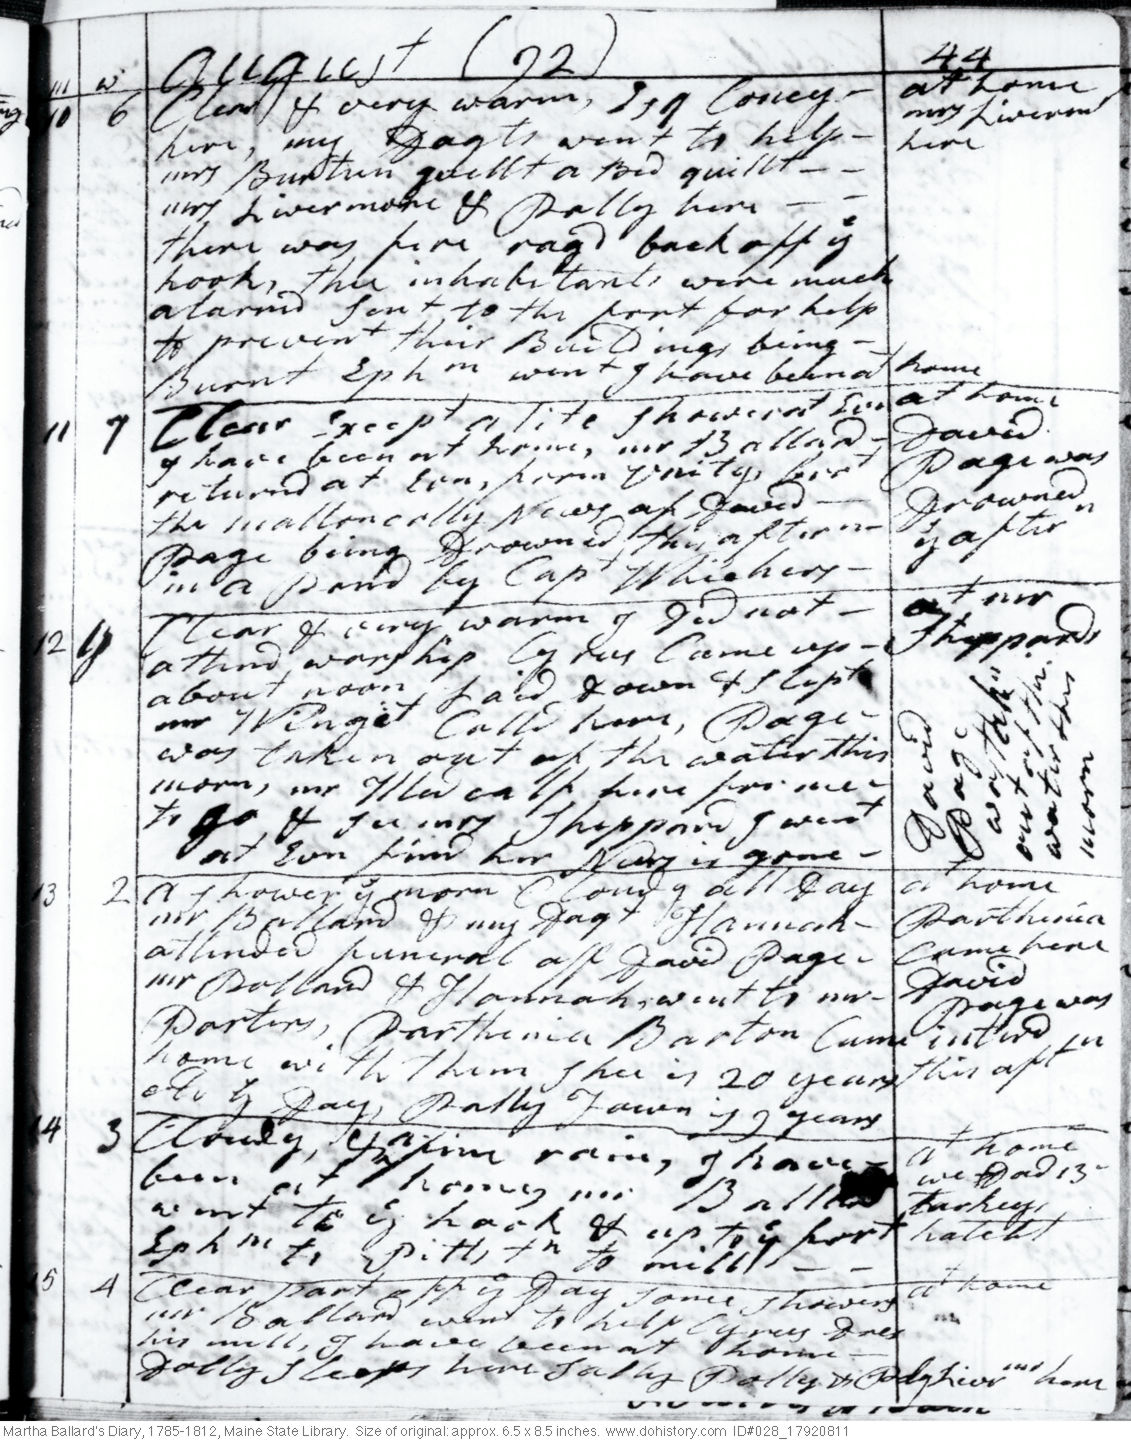 m w August (92) 44
10 6 Clear & very warm, Esq Coney at home
here, my Dagts went to help mrs Livermr
mrs Burtun quillt a Bed quillt - - here
mrs Livermore & Dolly here - -
there was fire ragd back off ye
hook, thee inhabitants were much
alarmd sent to the port for help
to prevent their Buildings being -
Burnt Ephm went I have been at home
11 7 Clear Except a litle shower at Evn at home
I have been at home, mr Ballard - David
returnd at Evn, from Unity, bert Page was
the malloncolly News of David - Drowned
Page being Drowned this aftern - ye aftern
in a pond by Capt Whichers -
12 g Clear & very warm I Did not - at mr
attend worship Cyrus Came up - Sheppards
about noon, Laid Down & slept
mr Wingat Calld here, Page -
was taken out of the water this
morn, mr Medcalf here for me -
to go & see mrs Sheppard I went
at Evn find her Nurs is gone -
David
Page
was tekn
out of the
water this
morn
13 2 a shower ye morn Cloudy all Day at home
mr Ballard & my Dagt Hannah - Parthenia
attended funeral off David Page - Came here
mr Pollard & Hannah went to mr - David
Porters, Parthenia Barton Came Page was
home with them shee is 20 years intird
old ye Day, Dally Town is 7 years this aftn
14 3 Cloudy, & a fine rain, I have - at home
been at home, mr Ballard we Had 13
went to ye hook & up to ye port turkeys
Ephm to Pittstn to mill - - hatcht
15 4 Clear part off ye Day some showers at home
mr Ballard went to help Cyrus Dres
his mill, I have been at home -
Dolly Sleeps here Sally Polly & Livermr here
Martha Ballard's Diary, 1785-1812, Maine State Library. Size of original: approx. 6.5 x 8.5 inches. www.dohistory.com ID#028_17920811